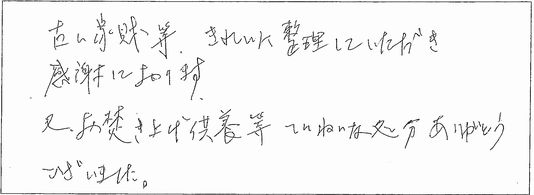 古い家財等、きれいに整理していただき
感謝しております。
又、お焚き上げ供養等ていねいな処分ありがとう
ございました。